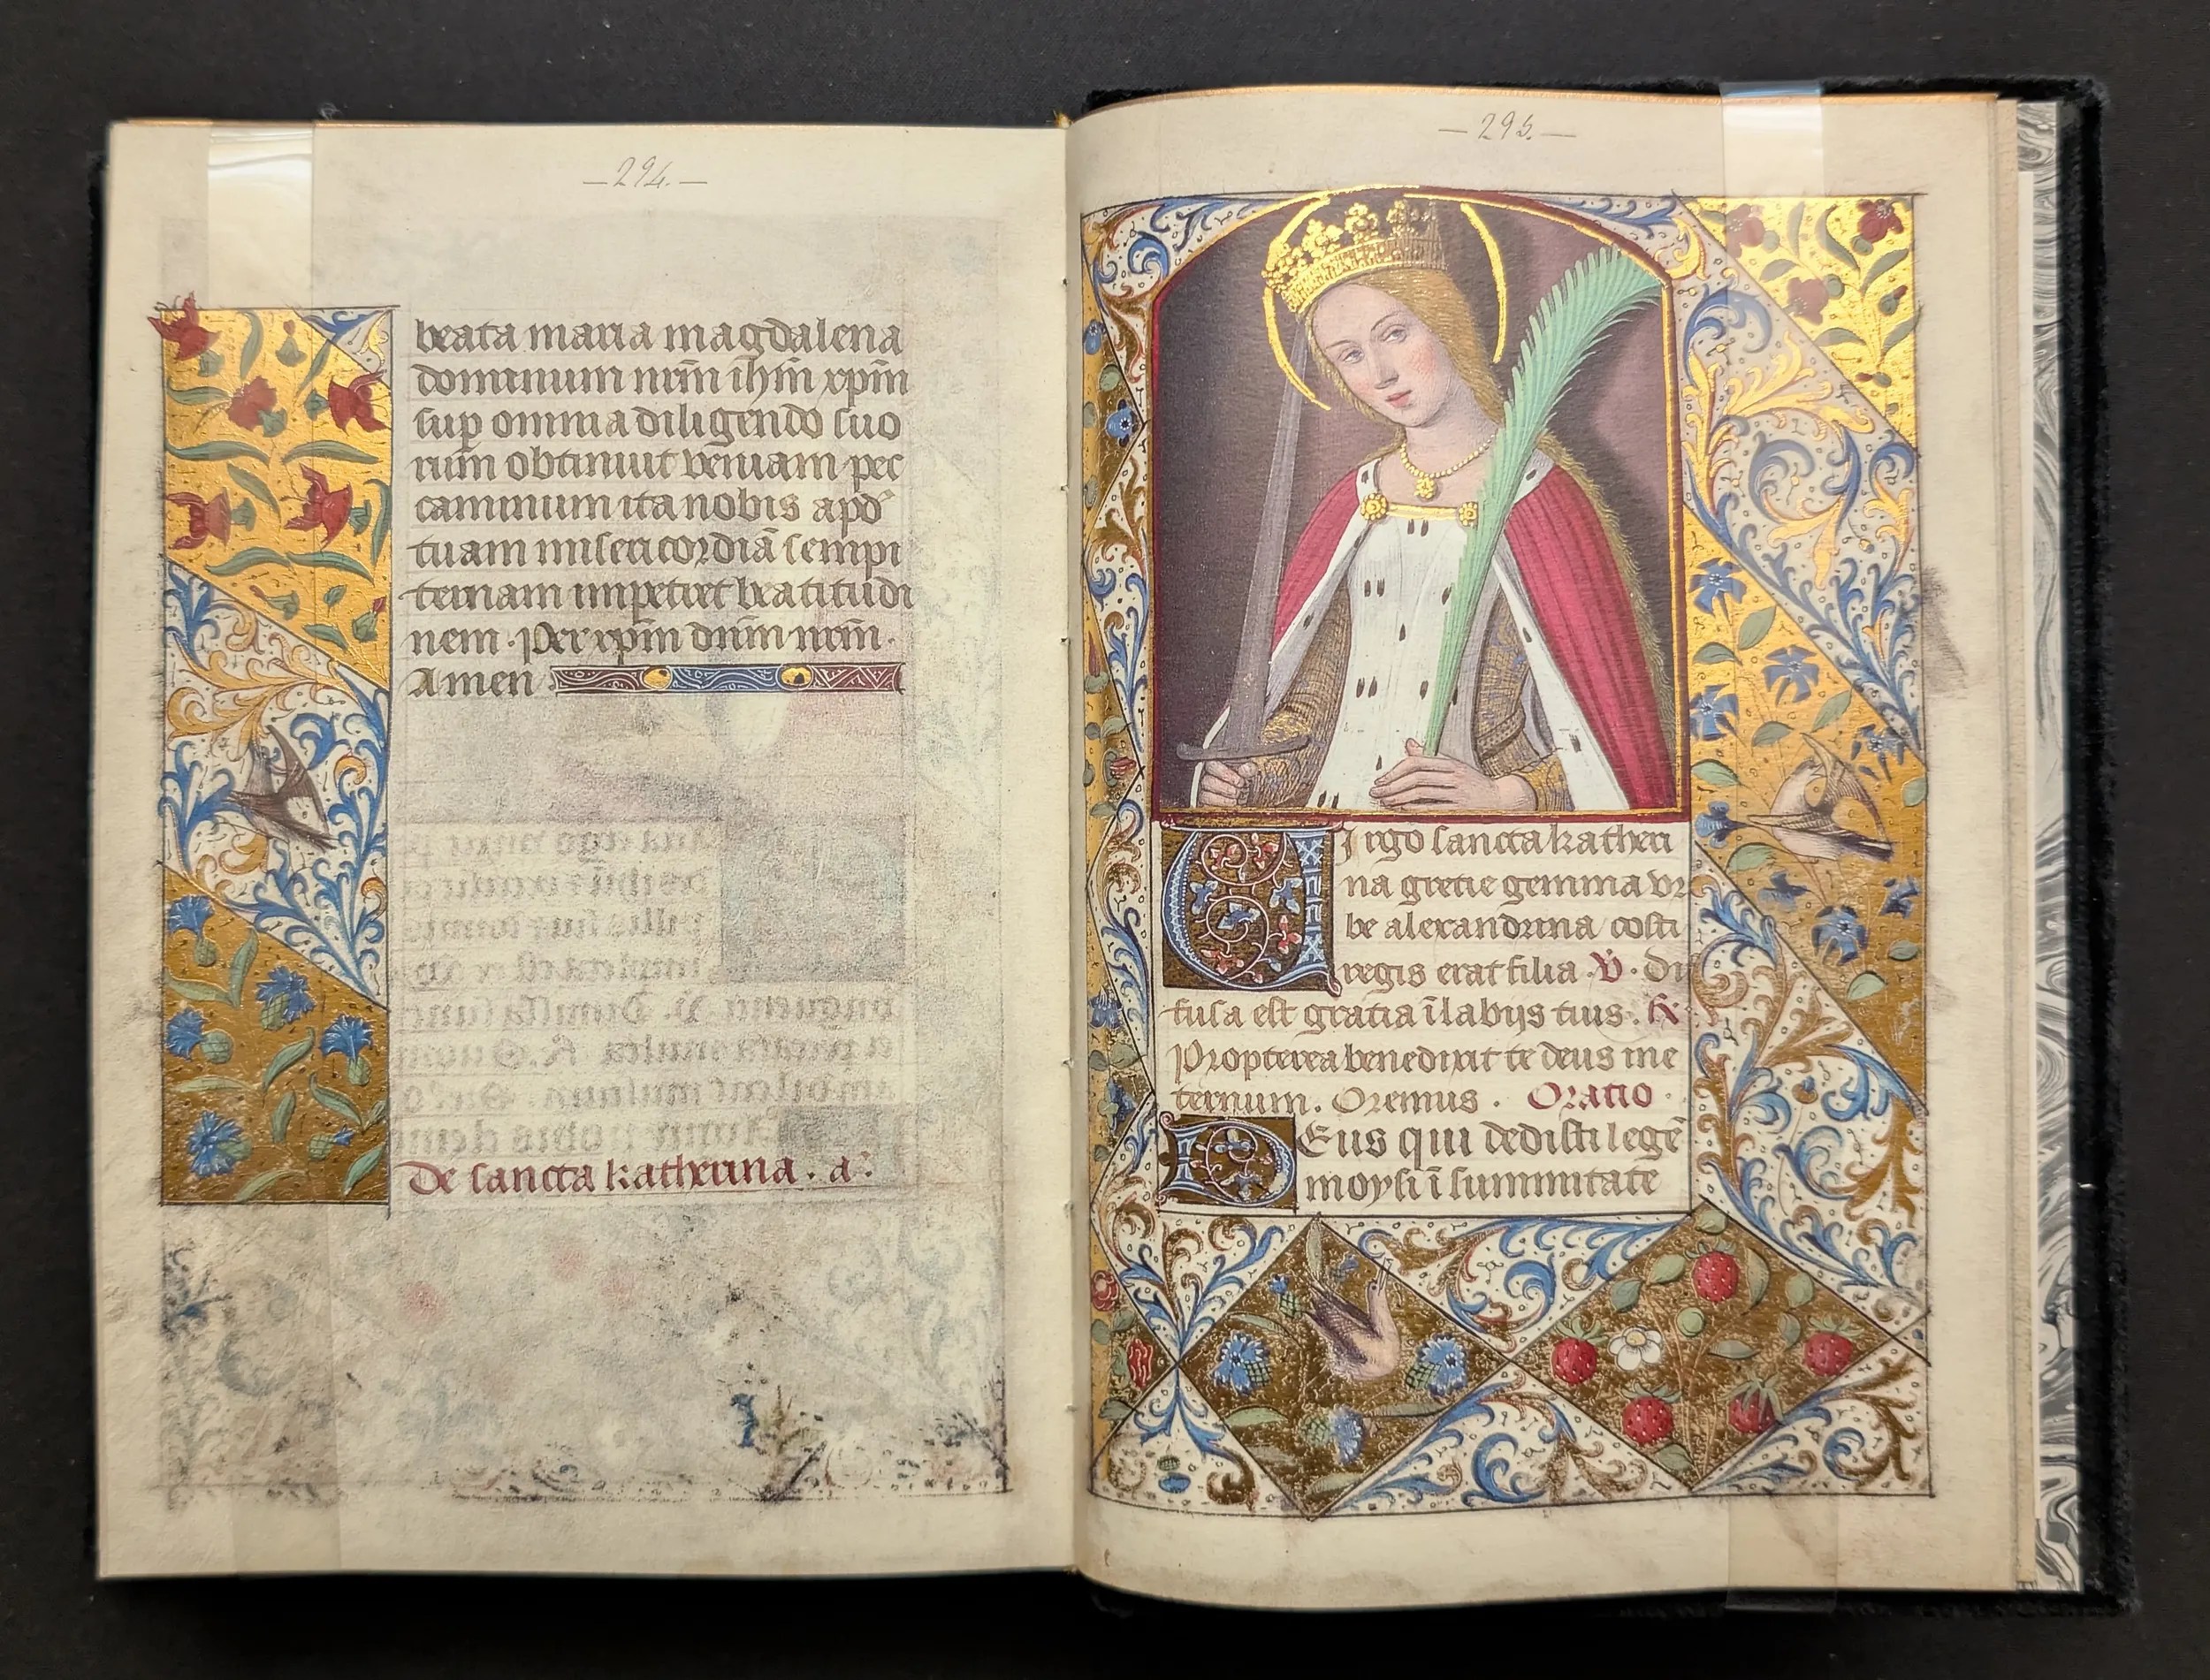 —294.—
beata maria magdalena
dominum nr̄m ih̄m xp̄m
sup om̄ia diligendo suo
rum obtinuit veniam pec
caminum ita nobis apd
tuam misericordiā sempi
ternam impetret beatitudi
nem · Per xp̄m dn̄m nr̄m ·
Amen
De sancta katherina · a͛:
—295.—
VIrgo sancta katheri
na grecie gemma vr
be alexandrina costi
regis erat filia · V̇ · Di
fusa est gracia ī labijs tuis · R̸ ·
Propterea benedixit te deus ine
ternum. Oremus · Oratio ·
DEus qui dedisti legē
moysi ī summitate